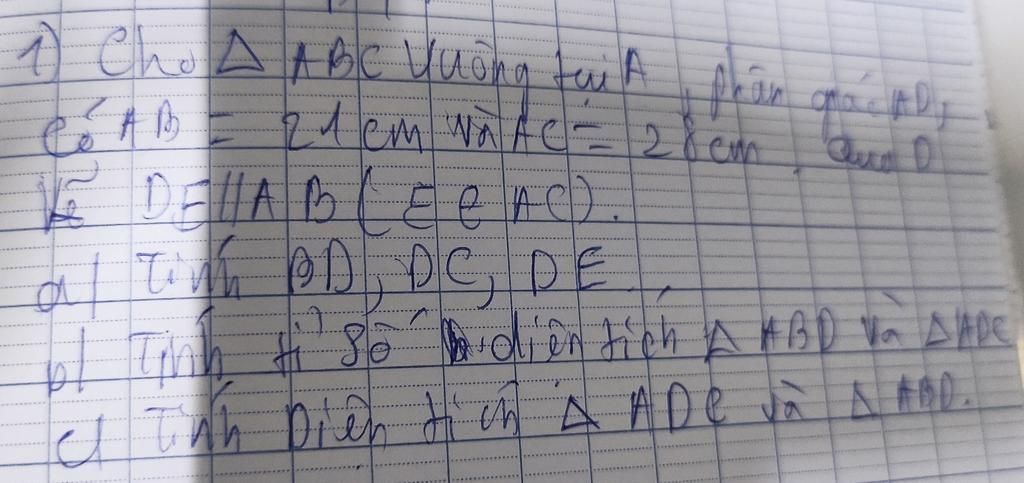 1) Cho Δ ABC Vuông tại A, phân giác AD,
Có AB = 21cm và AC = 28cm, Qua D
Vẽ DE//AB (E ∈ AC).
a/ Tính BD, DC, DE.
b/ Tính tỉ số diện tích Δ ABD và Δ ADC
c/ Tính Diện tích Δ ADE và Δ ABD.